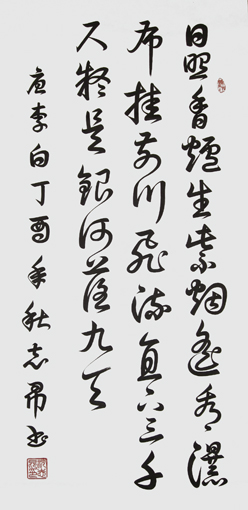 日照香爐生紫烟遙看瀑
布挂前川飛流直下三千
尺疑是銀河落九天
唐李白丁酉年秋志